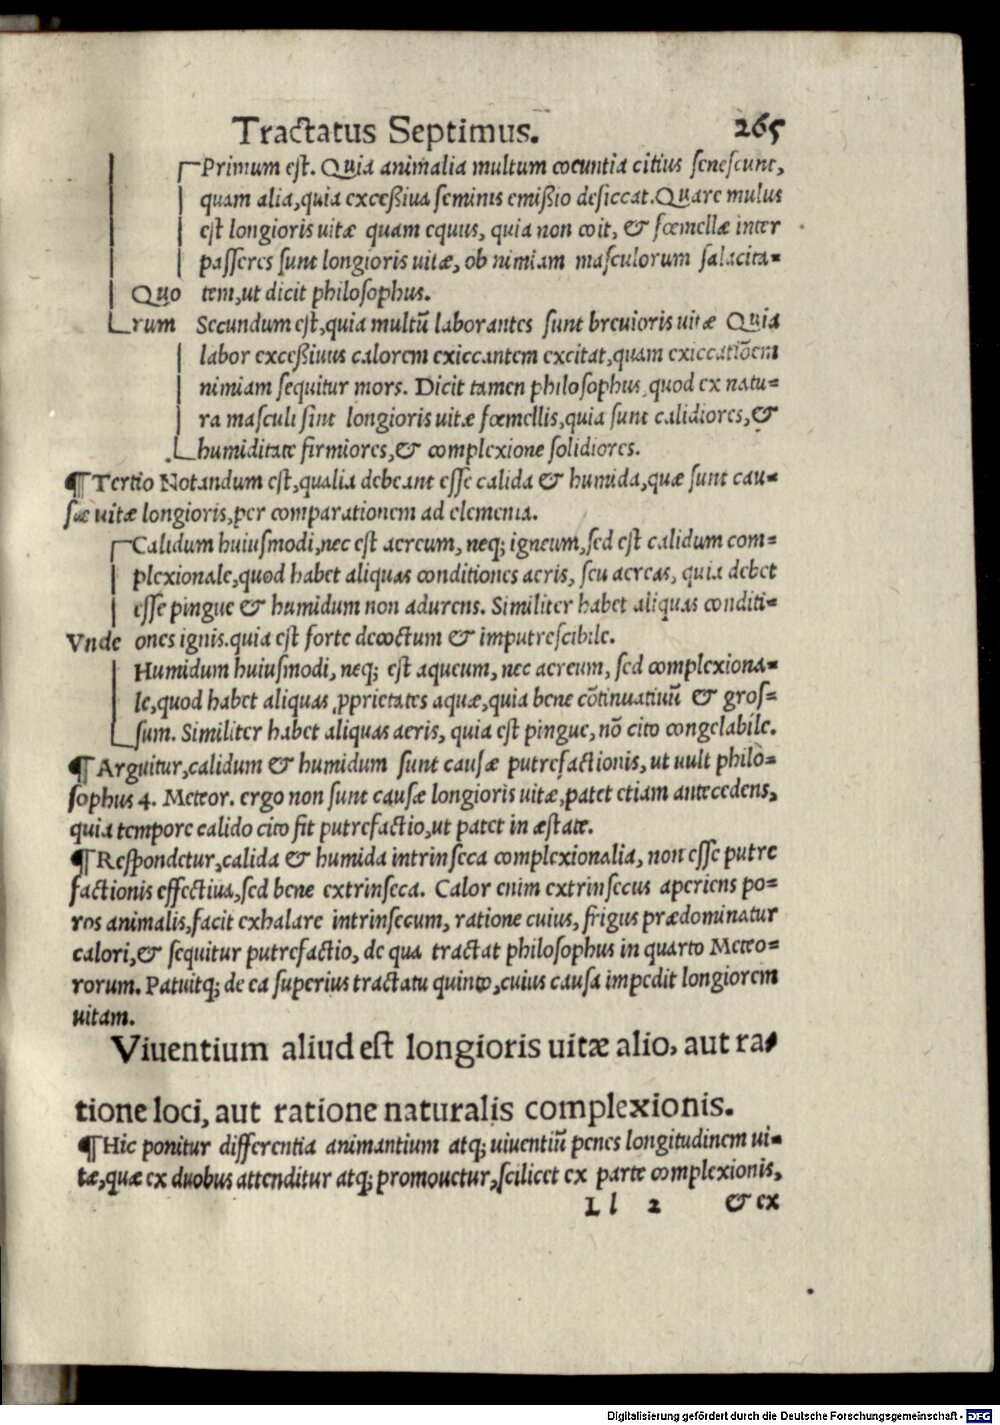 Tractatus Septimus. 265
Primum est. Quia animalia multum coeuntia citius senescunt,
quam alia, quia exceßiua seminis emißio desiccat. Quare mulus
est longioris uitæ quam equus, quia non coit, & fœmellæ inter
passeres sunt longioris uitæ, ob nimiam masculorum salacita=
Quo tem, ut dicit philosophus.
rum Secundum est, quia multū laborantes sunt breuioris uitæ Quia
labor exceßiuus calorem exiccantem excitat, quam exiccatiōem
nimiam sequitur mors. Dicit tamen philosophus quod ex natu=
ra masculi sint longioris uitæ fœmellis, quia sunt calidiores, &
humiditate firmiores, & complexione solidiores.
¶ Tertio Notandum est, qualia debeant esse calida & humida, quæ sunt cau=
sæ uitæ longioris, per comparationem ad elementa.
Calidum huiusmodi, nec est aereum, neq; igneum, sed est calidum com=
plexionale, quod habet aliquas conditiones aeris, seu aereas, quia debet
esse pingue & humidum non adurens. Similiter habet aliquas conditi=
Vnde ones ignis. quia est forte decoctum & imputrescibile.
Humidum huiusmodi, neq; est aqueum, nec aereum, sed complexiona=
le, quod habet aliquas ꝓprietates aquæ, quia bene cōtinuatiuū & gros=
sum. Similiter habet aliquas aeris, quia est pingue, nō cito congelabile.
¶ Arguitur, calidum & humidum sunt causæ putrefactionis, ut uult philo=
sophus 4. Meteor. ergo non sunt causæ longioris uitæ, patet etiam antecedens,
quia tempore calido cito fit putrefactio, ut patet in æstate.
¶ Respondetur, calida & humida intrinseca complexionalia, non esse putre
factionis effectiua, sed bene extrinseca. Calor enim extrinsecus aperiens po=
ros animalis, facit exhalare intrinsecum, ratione cuius, frigus prædominatur
calori, & sequitur putrefactio, de qua tractat philosophus in quarto Meteo=
rorum. Patuitq; de ea superius tractatu quinto, cuius causa impedit longiorem
uitam.
Viuentium aliud est longioris uitæ alio, aut ra=
tione loci, aut ratione naturalis complexionis.
¶ Hic ponitur differentia animantium atq; uiuentiū penes longitudinem ui=
tæ, quæ ex duobus attenditur atq; promouetur, scilicet ex parte complexionis,
Ll 2 & ex
Digitalisierung gefördert durch die Deutsche Forschungsgemeinschaft - DFG